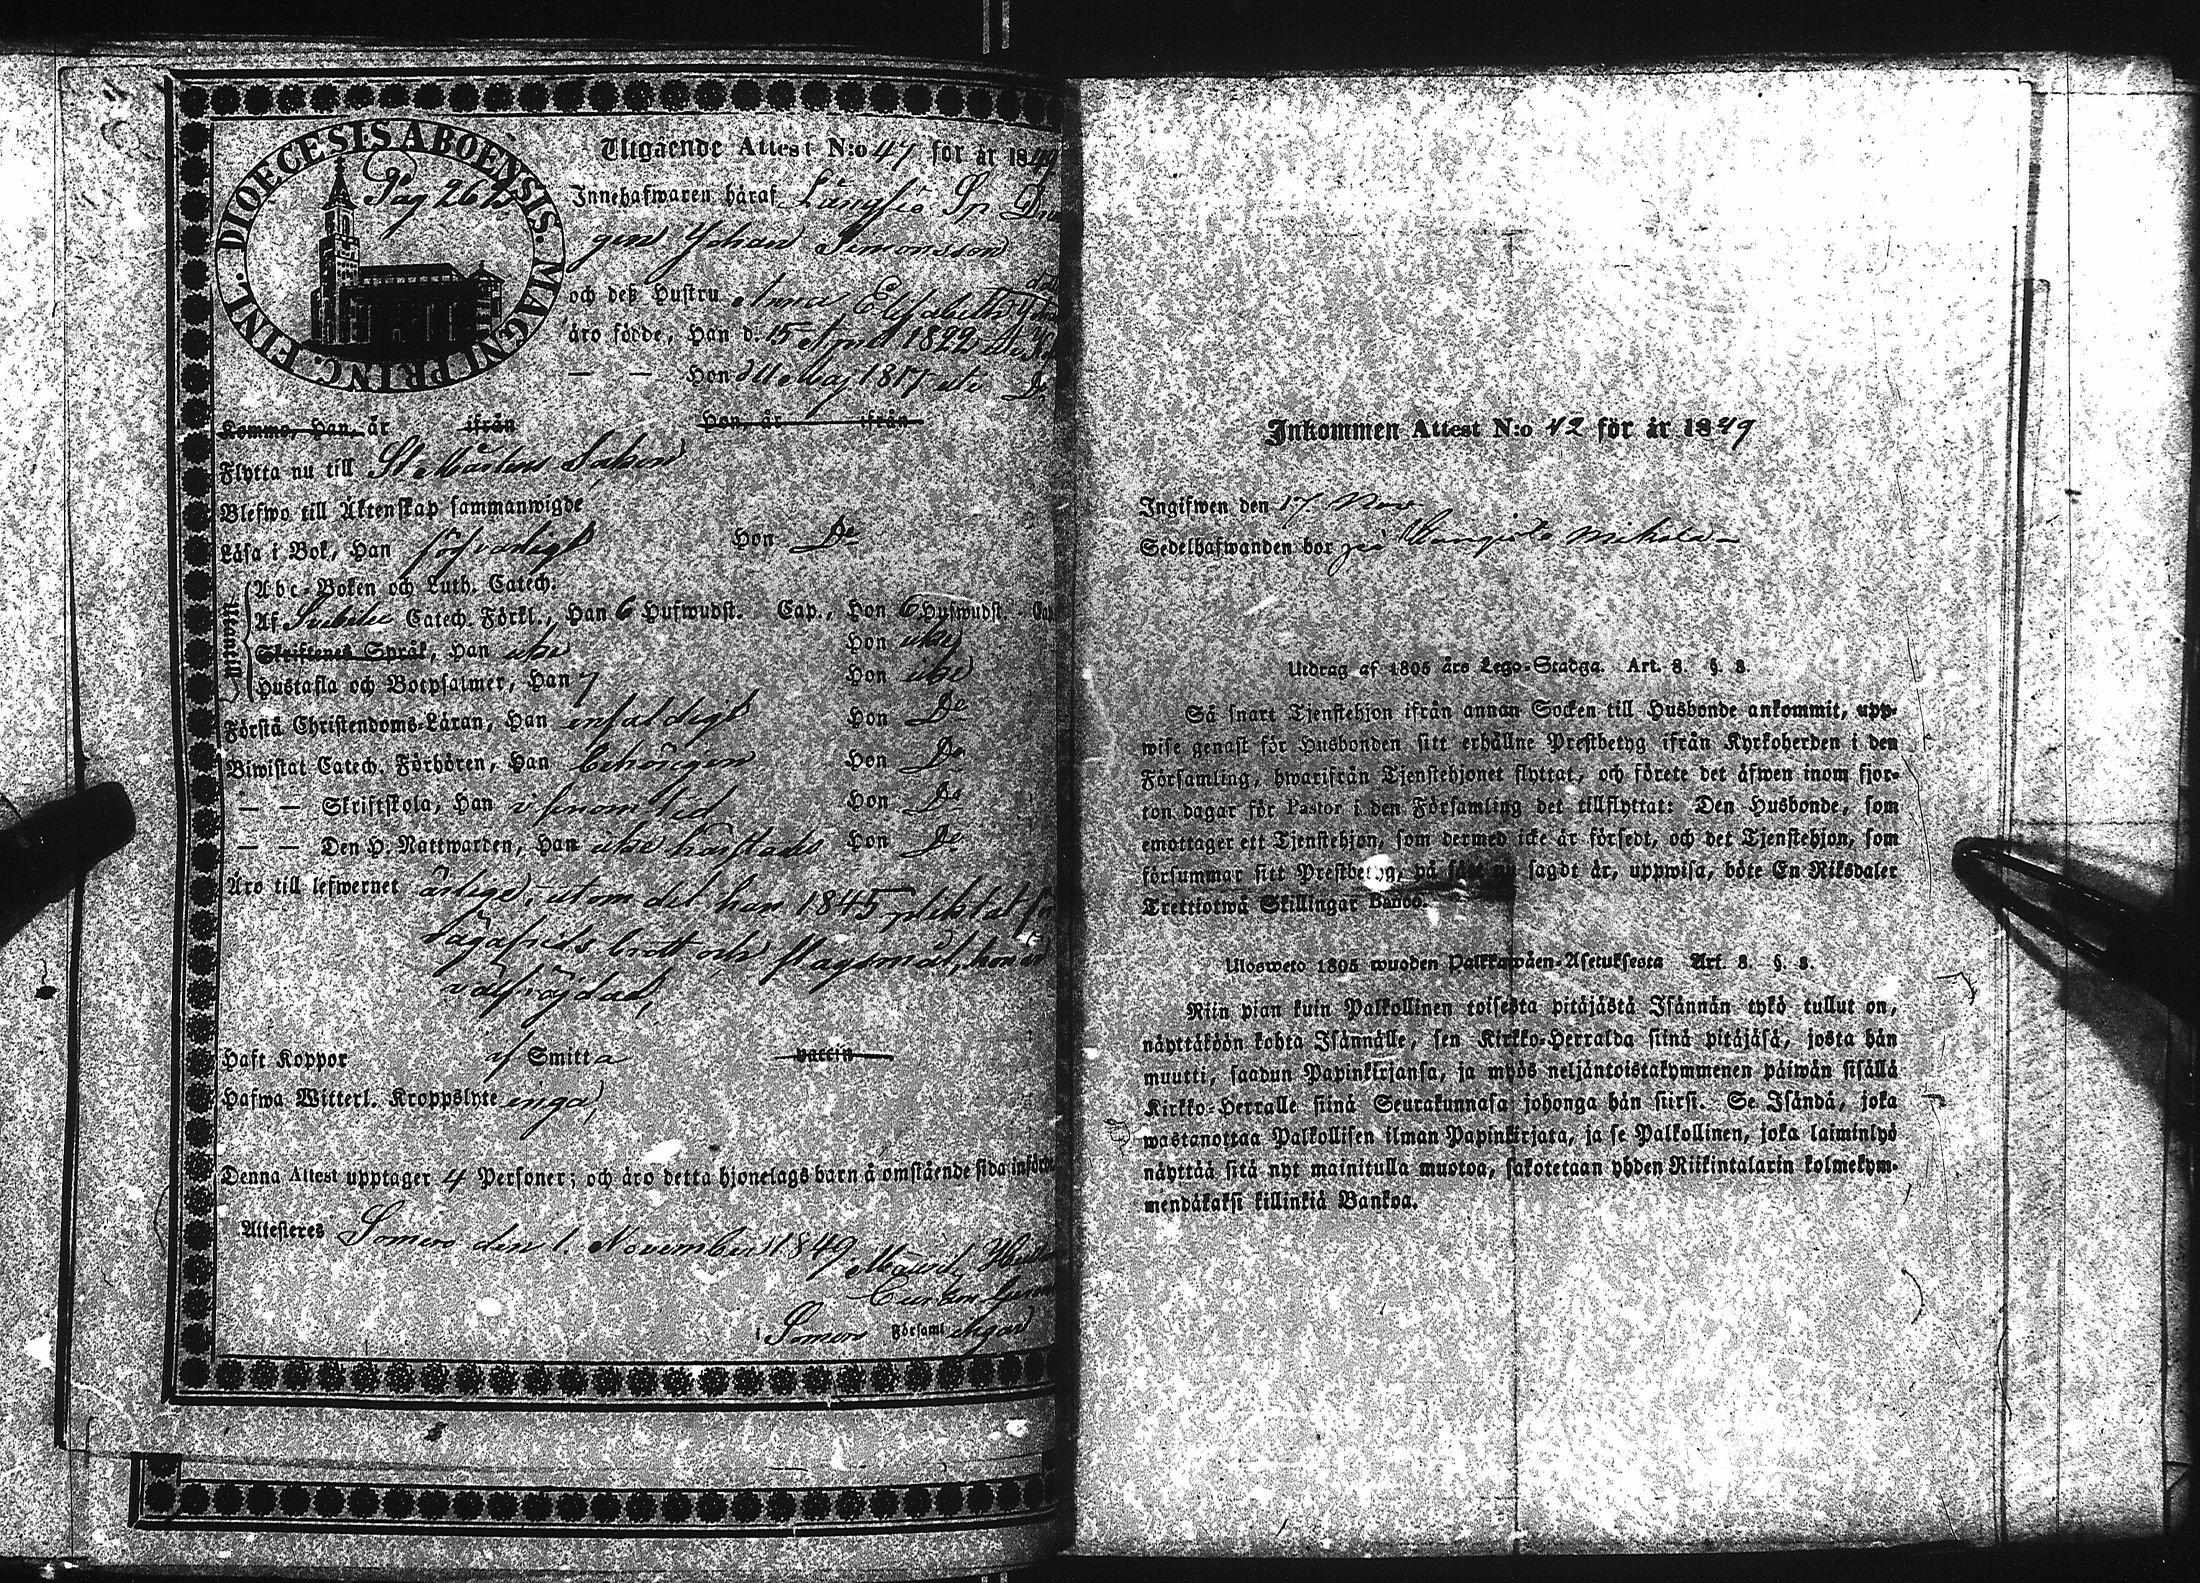 DIOECESIS ABOËNSIS. MAGNI PRINC. FINL.
Pag 262
Utgående Attest N:o 47 för år 1849
Innehafwaren häraf
gen Johan Simonsson
och deß Hustru Anna Elisabeth
äro födde, Han d. 15 April 1822 uti
— — Hon d 11 Maj 1817 uti Do
Komma, Han, år ifrån Hon, år ifrån
Flytta nu till St Mårtens Socken
Blefwo till Äktenskap sammanwigde
Läsa i Bok, Han förswarligt Hon Do
Utantill
Abc-Boken och Luth. Catech.
Af Svebilii Catech. Förkl., Han 6 Hufwudst. Cap., Hon 6 Hufwudst. Cap
Skriftenes Språk, Han icke Hon icke
Hustafla och Botpsalmer, Han 7 Hon icke
Förstå Christendoms-Läran, Han enfaldigt Hon Do
Biwistat Catech. Förhören, Han behörigen Hon Do
— — Skriftskola, Han Hon Do
— — Den H. Nattwarden, Han icke härstädes Hon Do
Äro till lefwernet ärliga, utom det han 1845 pliktat
brott och slagsmål, hon är
Haft Koppor af Smitta vaccin
Hafwa Witterl. Kroppslyte inga,
Denna Attest upptager 4 Personer; och äro detta hjonelags barn å omstående sida
Attesteres Somero den 1. November 1849
i Somero Församl ingar
Inkommen Attest N:o 42 för år 1849
Ingifwen den 17. Nov.
Sedelhafwanden bor på
Utdrag af 1805 års Lego-Stadga. Art. 8. §. 8.
Så snart Tjenstehjon ifrån annan Socken till Husbonde ankommit, upp-
wise genast för Husbonden sitt erhållne Prestbetyg ifrån Kyrkoherden i den
Församling, hwarifrån Tjenstehjonet flyttat, och förete det äfwen inom fjor-
ton dagar för Pastor i den Församling det tillflyttat: Den Husbonde, som
emottager ett Tjenstehjon, som dermed icke är försedt, och det Tjenstehjon, som
försummar sitt Prestbetyg, på sätt nu sagdt är, uppwisa, böte En Riksdaler
Trettiotwå Skillingar Banco.
Ulosweto 1805 wuoden Palkkawäen-Asetuksesta Art. 8. §. 8.
Niin pian kuin Palkollinen toisesta pitäjästä Isännän tykö tullut on,
näyttäköön kohta Isännälle, sen Kirkko-Herralda siinä pitäjäsä, josta hän
muutti, saadun Papinkirjansa, ja myös neljäntoistakymmenen päiwän sisällä
Kirkko-Herralle siinä Seurakunnasa johonga hän siirsi. Se Isändä, joka
wastanottaa Palkollisen ilman Papinkirjata, ja se Palkollinen, joka laiminlyö
näyttää sitä nyt mainitulla muotoa, sakotetaan yhden Riikintalarin kolmekym-
mendäkaksi killinkiä Bankoa.